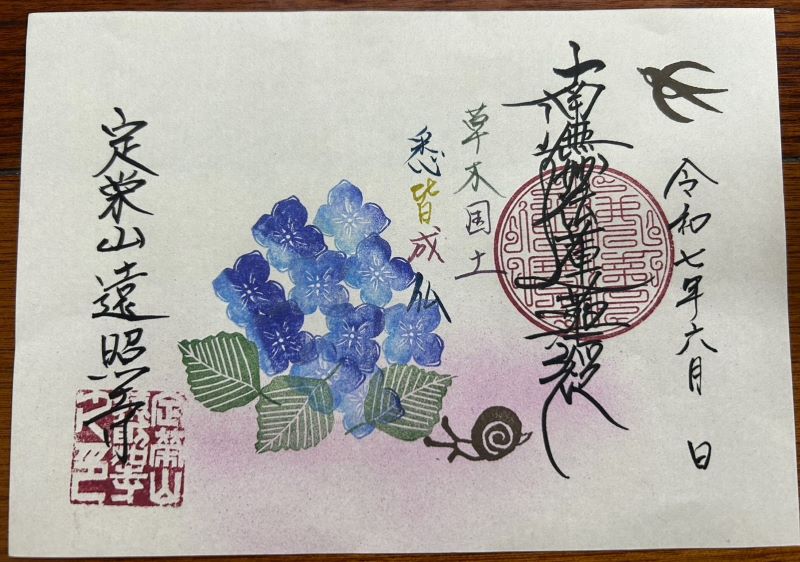 令和七年六月 日
南無妙法蓮華経
草木国土
悉皆成仏
定栄山遠照寺